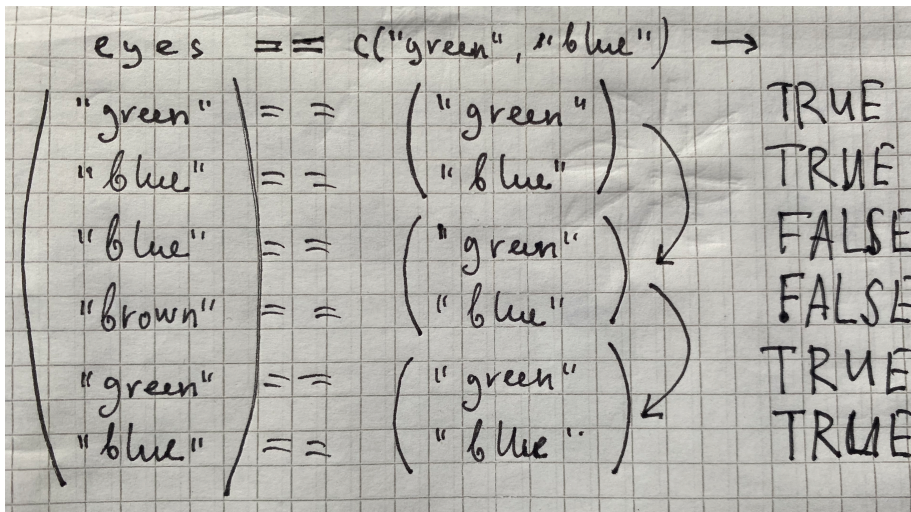 eyes == c("green", "blue") →
"green" == "green" TRUE
"blue" == "blue" TRUE
"blue" == "green" FALSE
"brown" == "blue" FALSE
"green" == "green" TRUE
"blue" == "blue" TRUE